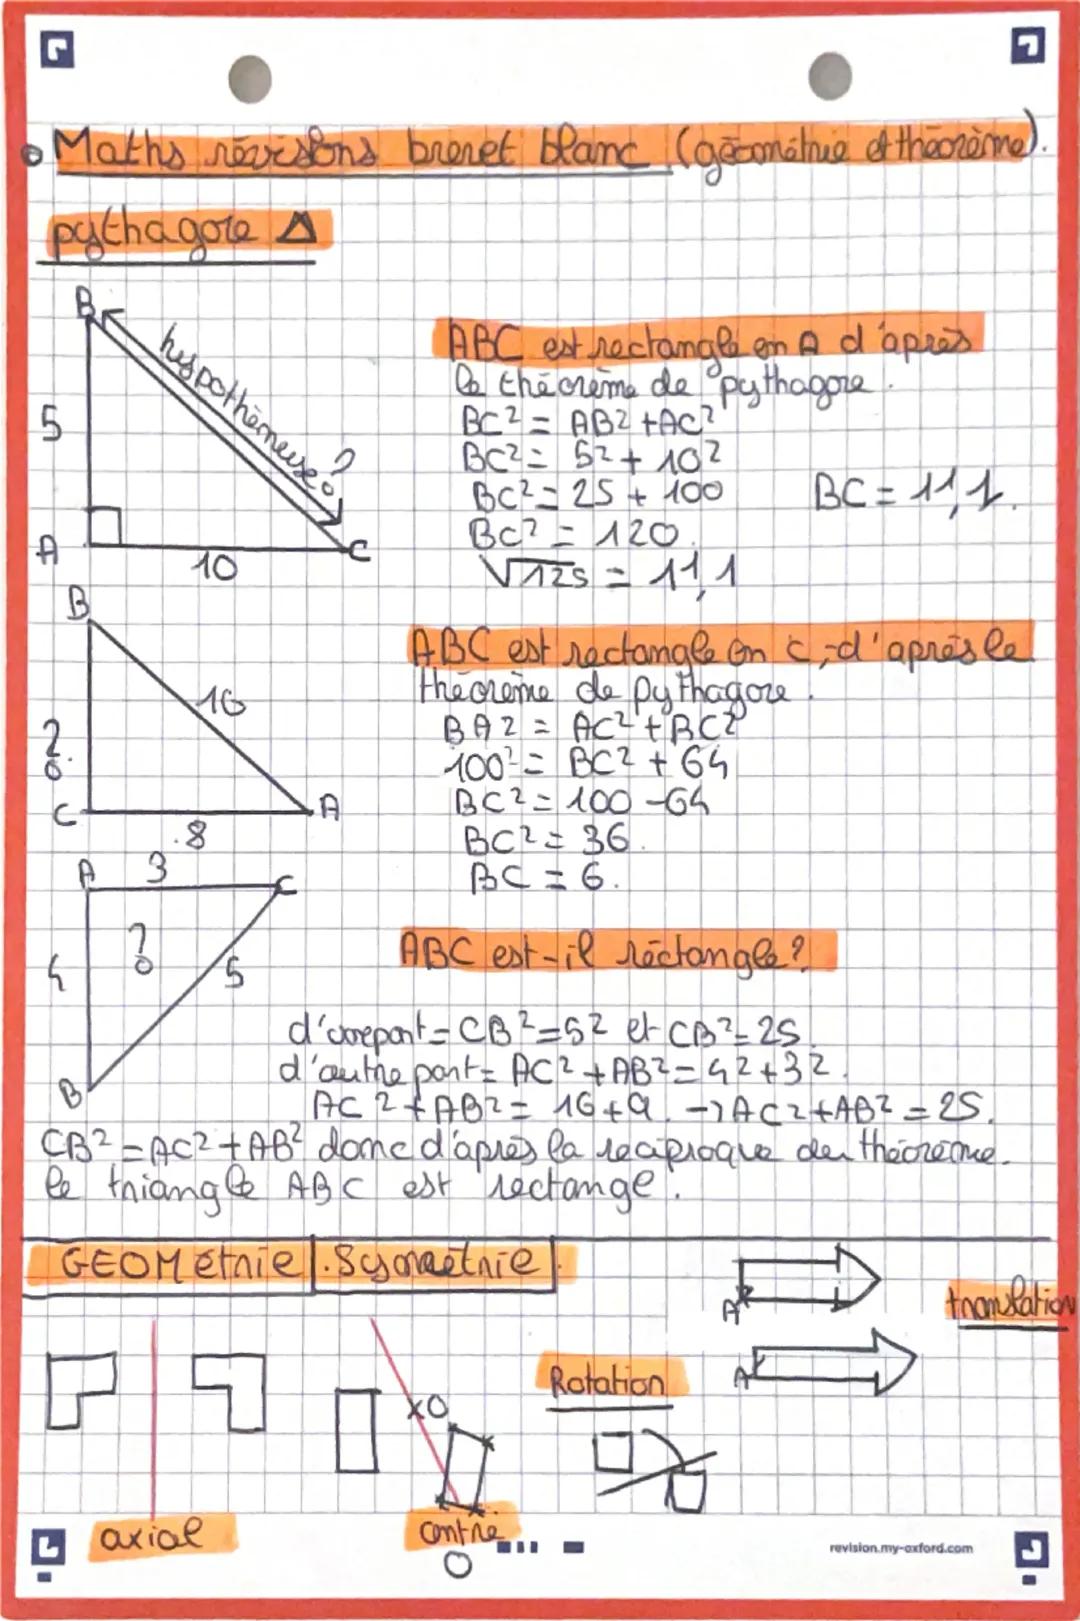 Maths révisions brevet blanc (géométrie et théorème).
pythagore Δ
B
hypothéneuse ?
5
A
10
C
ABC est rectangle en A d'après
le théorème de pythagore.
BC² = AB² + AC²
BC² = 5² + 10²
BC² = 25 + 100
BC = 11,1.
BC² = 120.
√125 = 11,1
B
16
?
C
8
A
ABC est rectangle en C, d'après le
théorème de pythagore.
BA2 = AC² + BC²
100² = BC² + 64
BC² = 100 - 64
BC² = 36.
BC = 6.
A
3
C
4
?
5
B
ABC est-il réctangle?
d'une part = CB² = 5² et CB² = 25.
d'autre part = AC² + AB² = 4² + 3².
AC² + AB² = 16 + 9. → AC² + AB² = 25.
CB² = AC² + AB² donc d'après la reciproque du théorème.
le triangle ABC est rectange.
GEOMétrie . Symétrie
A
translation
A'
Rotation
O
axial
centre
O
revision.my-oxford.com